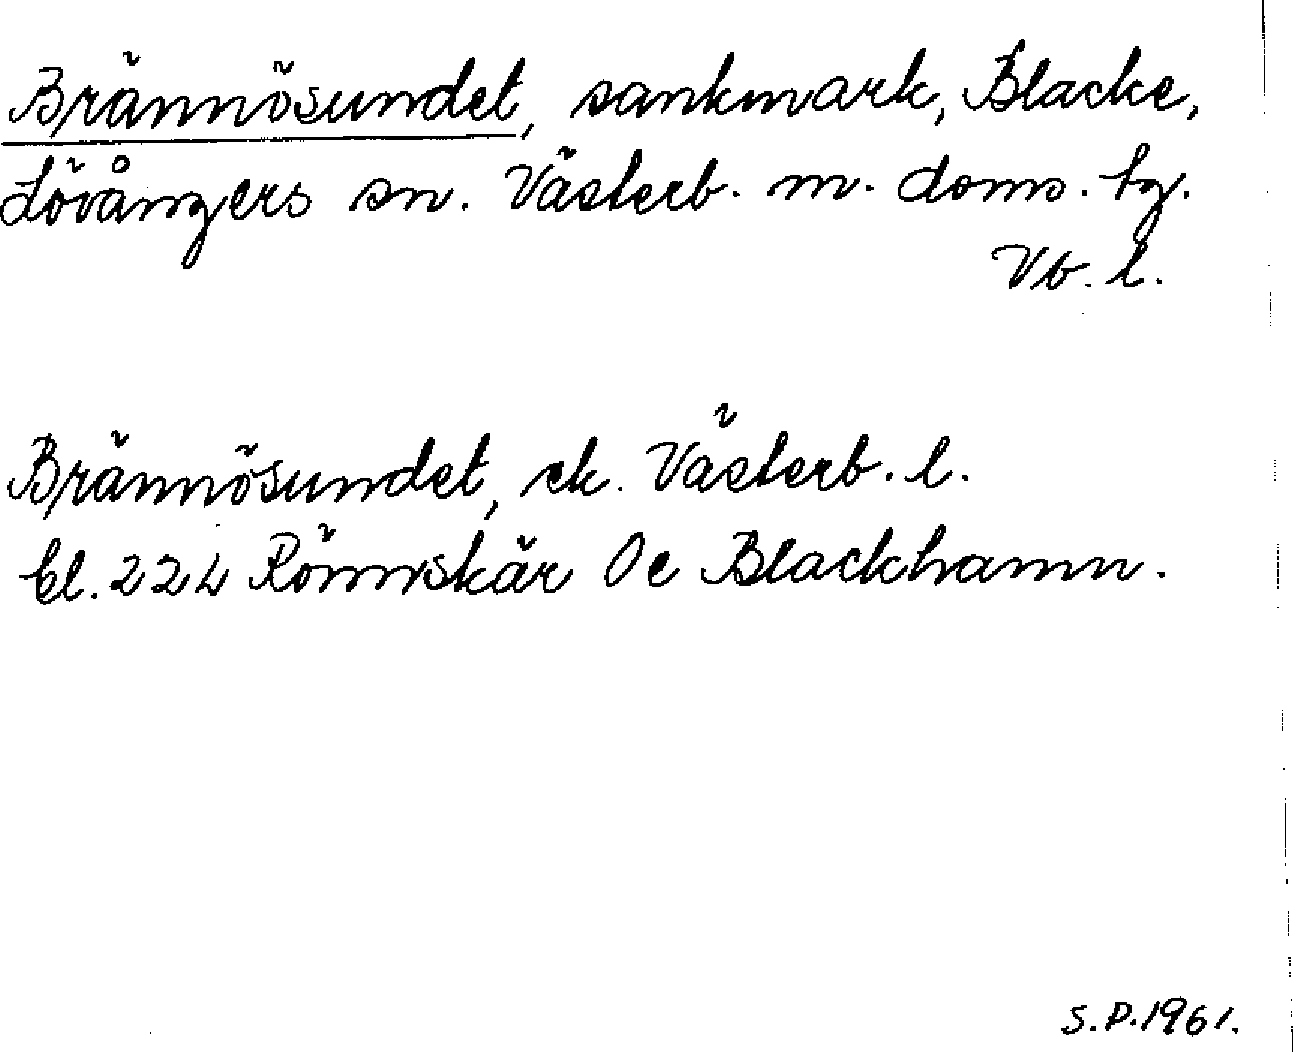 Brännösundet, sankmark, Blacke,
Lövångers sn. Västerb. m. doms. tg.
Vb. l.
Brännösundet, ek. Västerb. l.
bl. 224 Rönnskär Oe Blackhamn.
S.P. 1961.